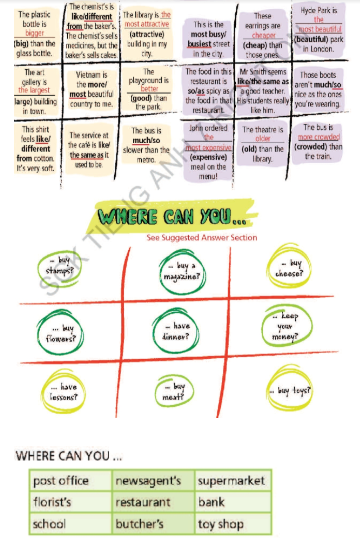 The plastic
bottle is
bigger
(big) than the
glass bottle.
The chemist's is
like/different
from the baker's.
The chemist's sells
medicines, but the
baker's sells cakes.
The library is the
most attractive
(attractive)
building in my
city.
This is the
most busy/
busiest street
in the city.
These
earrings are
cheaper
(cheap) than
those ones.
Hyde Park is
the
most beautiful
(beautiful) park
in London.
The art
gallery is
the largest
large) building
in town.
Vietnam is
the more/
most beautiful
country to me.
The
playground is
better
(good) than
the park.
The food in this
restaurant is
so/as spicy as
the food in that
restaurant.
Mr Smith seems
like/the same as
a good teacher.
His students really
like him.
Those boots
aren't much/so
nice as the ones
you're wearing.
This shirt
feels like/
different
from cotton.
It's very soft.
The service at
the café is like/
the same as it
used to be.
The bus is
much/so
slower than the
metro.
John ordered
the
most expensive
(expensive)
meal on the
menu!
The theatre is
older
(old) than the
library.
The bus is
more crowded
(crowded) than
the train.
WHERE CAN YOU...
See Suggested Answer Section
... buy
stamps?
... buy a
magazine?
... buy
cheese?
... buy
flowers?
... have
dinner?
... keep
your
money?
... have
lessons?
... buy
meat?
... buy toys?
WHERE CAN YOU ...
post office newsagent's supermarket
florist's restaurant bank
school butcher's toy shop